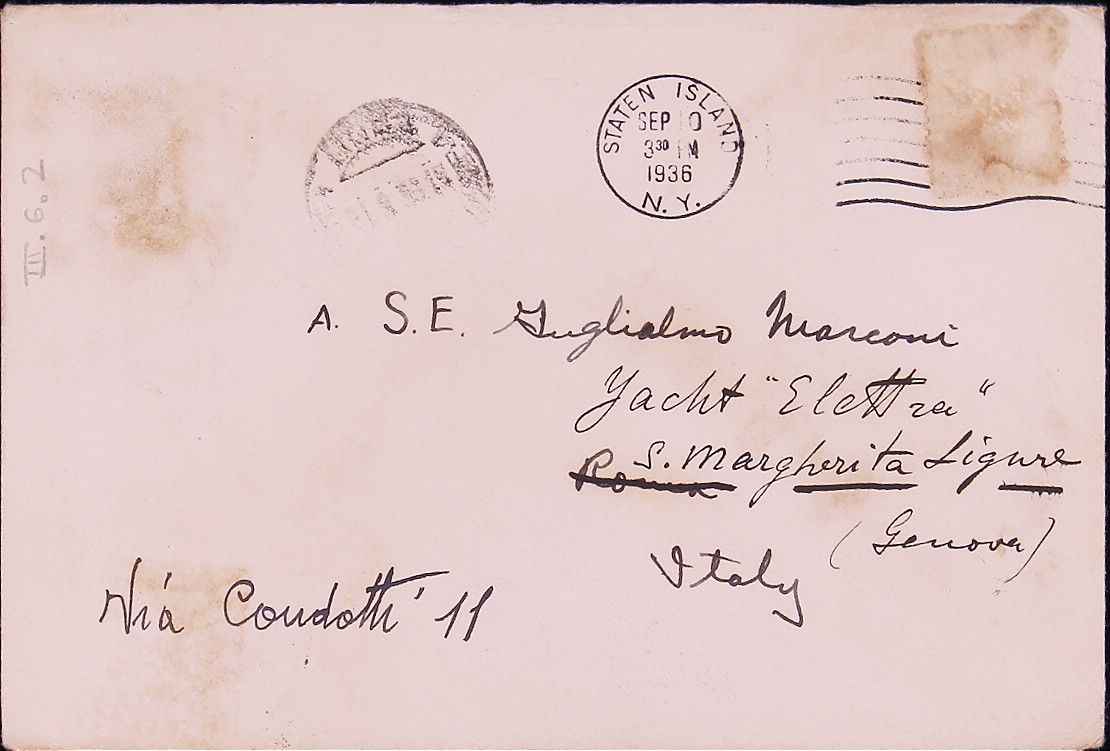 III.6.2
STATEN ISLAND
SEP 10
3 30 PM
1936
N.Y.
A. S.E. Guglialmo Marconi
Yacht "Elettra"
Roma S. Margherita Ligure
(Genova)
Italy
Via Condotti 11